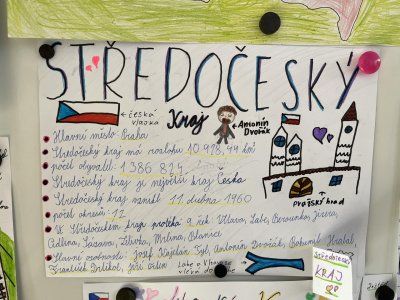 STŘEDOČESKÝ
Kraj
česká
vlajka
Antonín
Dvořák
Hlavní město: Praha
Středočeský kraj má rozlohu 10 928,44 km²
počet obyvatel: 1 386 824
Středočeský kraj je největší kraj Česka
Středočeský kraj vznikl 11 dubna 1960
počet okresů: 12
Pražský hrad
Ve Středočeském kraji protéká 9 řek: Vltava, Labe, Berounka, Jizera,
Cidlina, Sázava, Želivka, Mrlina, Blanice
Hlavní osobnosti: Josef Kajetán Tyl, Antonín Dvořák, Bohumil Hrabal,
František Drtikol, Jiří Orten
Labe a Vltava
Středočeský
KRAJ